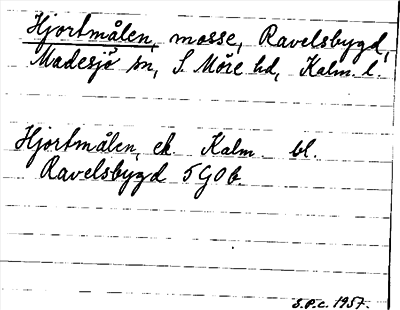 Hjortmålen, mosse, Ravelsbygd,
Madesjö sn, S. Möre hd, Kalm. l.
Hjortmålen, ek. Kalm. bl.
Ravelsbygd 5G0b.
S.P.C. 1957.